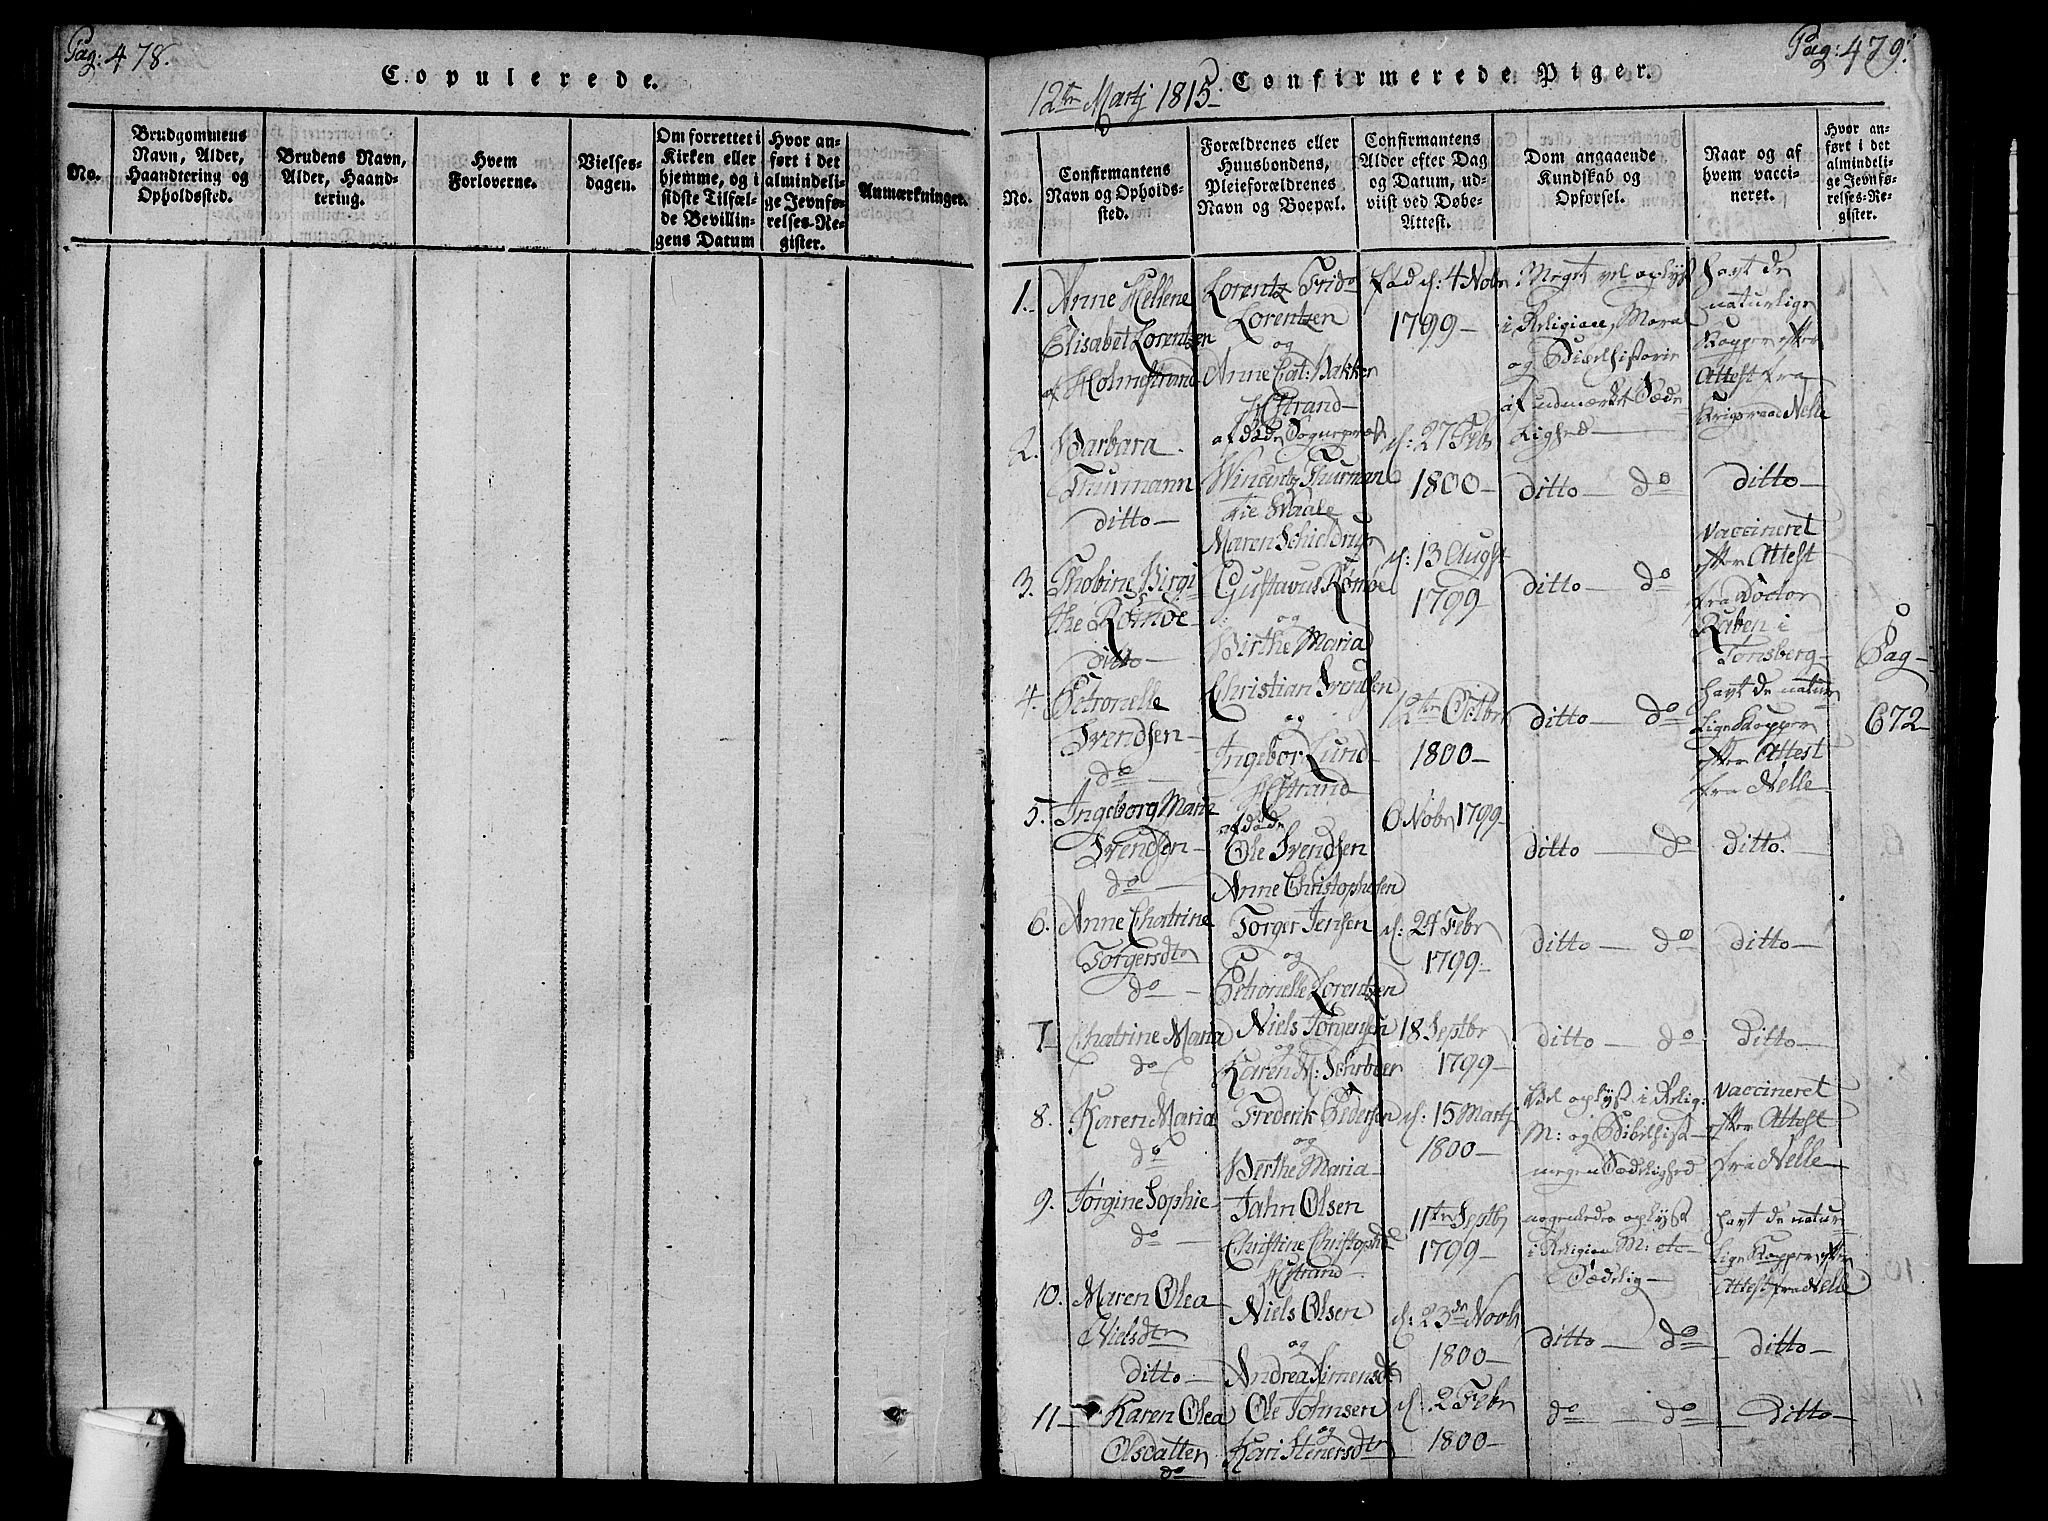 Pag: 478.
Copulerede.
No.
Brudgommens
Navn, Alder,
Haandtering og
Opholdssted.
Brudens Navn,
Alder, Haand-
tering.
Hvem
Forloverne.
Vielses-
dagen.
Om forrettet i
Kirken eller
hjemme, og i
sidste Tilfæl-
de Bevillin-
gens Datum
Hvor an-
ført i det
almindeli-
ge Jevnfø-
relses-Re-
gister.
Anmærkninger.
Pag: 479.
12te Martj 1815.
Confirmerede Piger.
No.
Confirmantens
Navn og Opholds-
sted.
Forældrenes eller
Huusbondens,
Pleieforældrenes
Navn og Boepæl.
Confirmantens
Alder efter Dag
og Datum, ud-
viist ved Døbe-
Attest.
Dom angaaende
Kundskab og
Opførsel.
Naar og af
hvem vacci-
neret.
Hvor an-
ført i det
almindeli-
ge Jevnfø-
relses-Re-
gister.
1.
Anne Hellene
Elisabet Lorentzen
af Holmestrand
Lorentz Frid
Lorentzen
og
Anne Cat: Bakken
HStrand
fød d: 4 Nobr
1799
Meget vel oplyst
i Religion, Mora
og Bibelhistorie
af udmærket Sæde
lighed
havt de
naturlige
Kopper efter
Attest fra
Krigsraad Nelle
2.
Barbara
Thurmann
ditto
afdøde Sogneprest
Wincentz Thurman
Maren Schieldrup
d: 27 Febr
1800
ditto do
ditto
3.
Thobine Birgi
the Rømoe
ditto
Gustavus Rømoe
og
Birthe Maria
d: 13 Augst
1799
ditto do
vaccineret
efter Attest
fra Doctor
Raben i
Tønsberg
4.
Petronelle
Svendsen
do
Christian Svendsen
og
Ingebor Lund
HStrand
12te Octbr
1800
ditto do
havt de natur
lige Kopper
efter Attest
fra Nelle
Pag
672
5.
Ingeborg Marie
Svendsen
do
afdøde
Ole Svendsen
Anne Christophesen
6 Nobr 1799
ditto do
ditto.
6.
Anne Chatrine
Torgersdtr
do
Torger Jensen
og
Petronelle Lorentzen
d: 24 Febr
1799
ditto do
ditto
7
Chatrine Maria
do
Niels Jørgensen
og
Karen M: Schrøder
18 Septbr
1799
ditto do
ditto
8.
Karen Maria
do
Frederik Pedersen
og
Berthe Maria
d: 15 Martj
1800
Vel oplyst i Relig:
M: og Bibelhist
megen Sædelighed
vaccineret
efter Attest
fra Nelle
9.
Jørgine Sophie
do
Jahn Olsen
Christine Christoph
HStrand
11te Septbr
1799
nogenledes oplyst
i Religion M: etc
Sædelig
havt de natur
lige Kopper efter
Attest fra Nelle
10.
Maren Olea
Nielsdtr
ditto
Niels Olsen
og
Andrea Simensdtr
d: 23de Novbr
1800
ditto do
ditto
11
Karen Olea
Olsdatter
do
Ole Johnsen
og
Kari Stenersdtr
d: 2 Febr
1800
do do
ditto